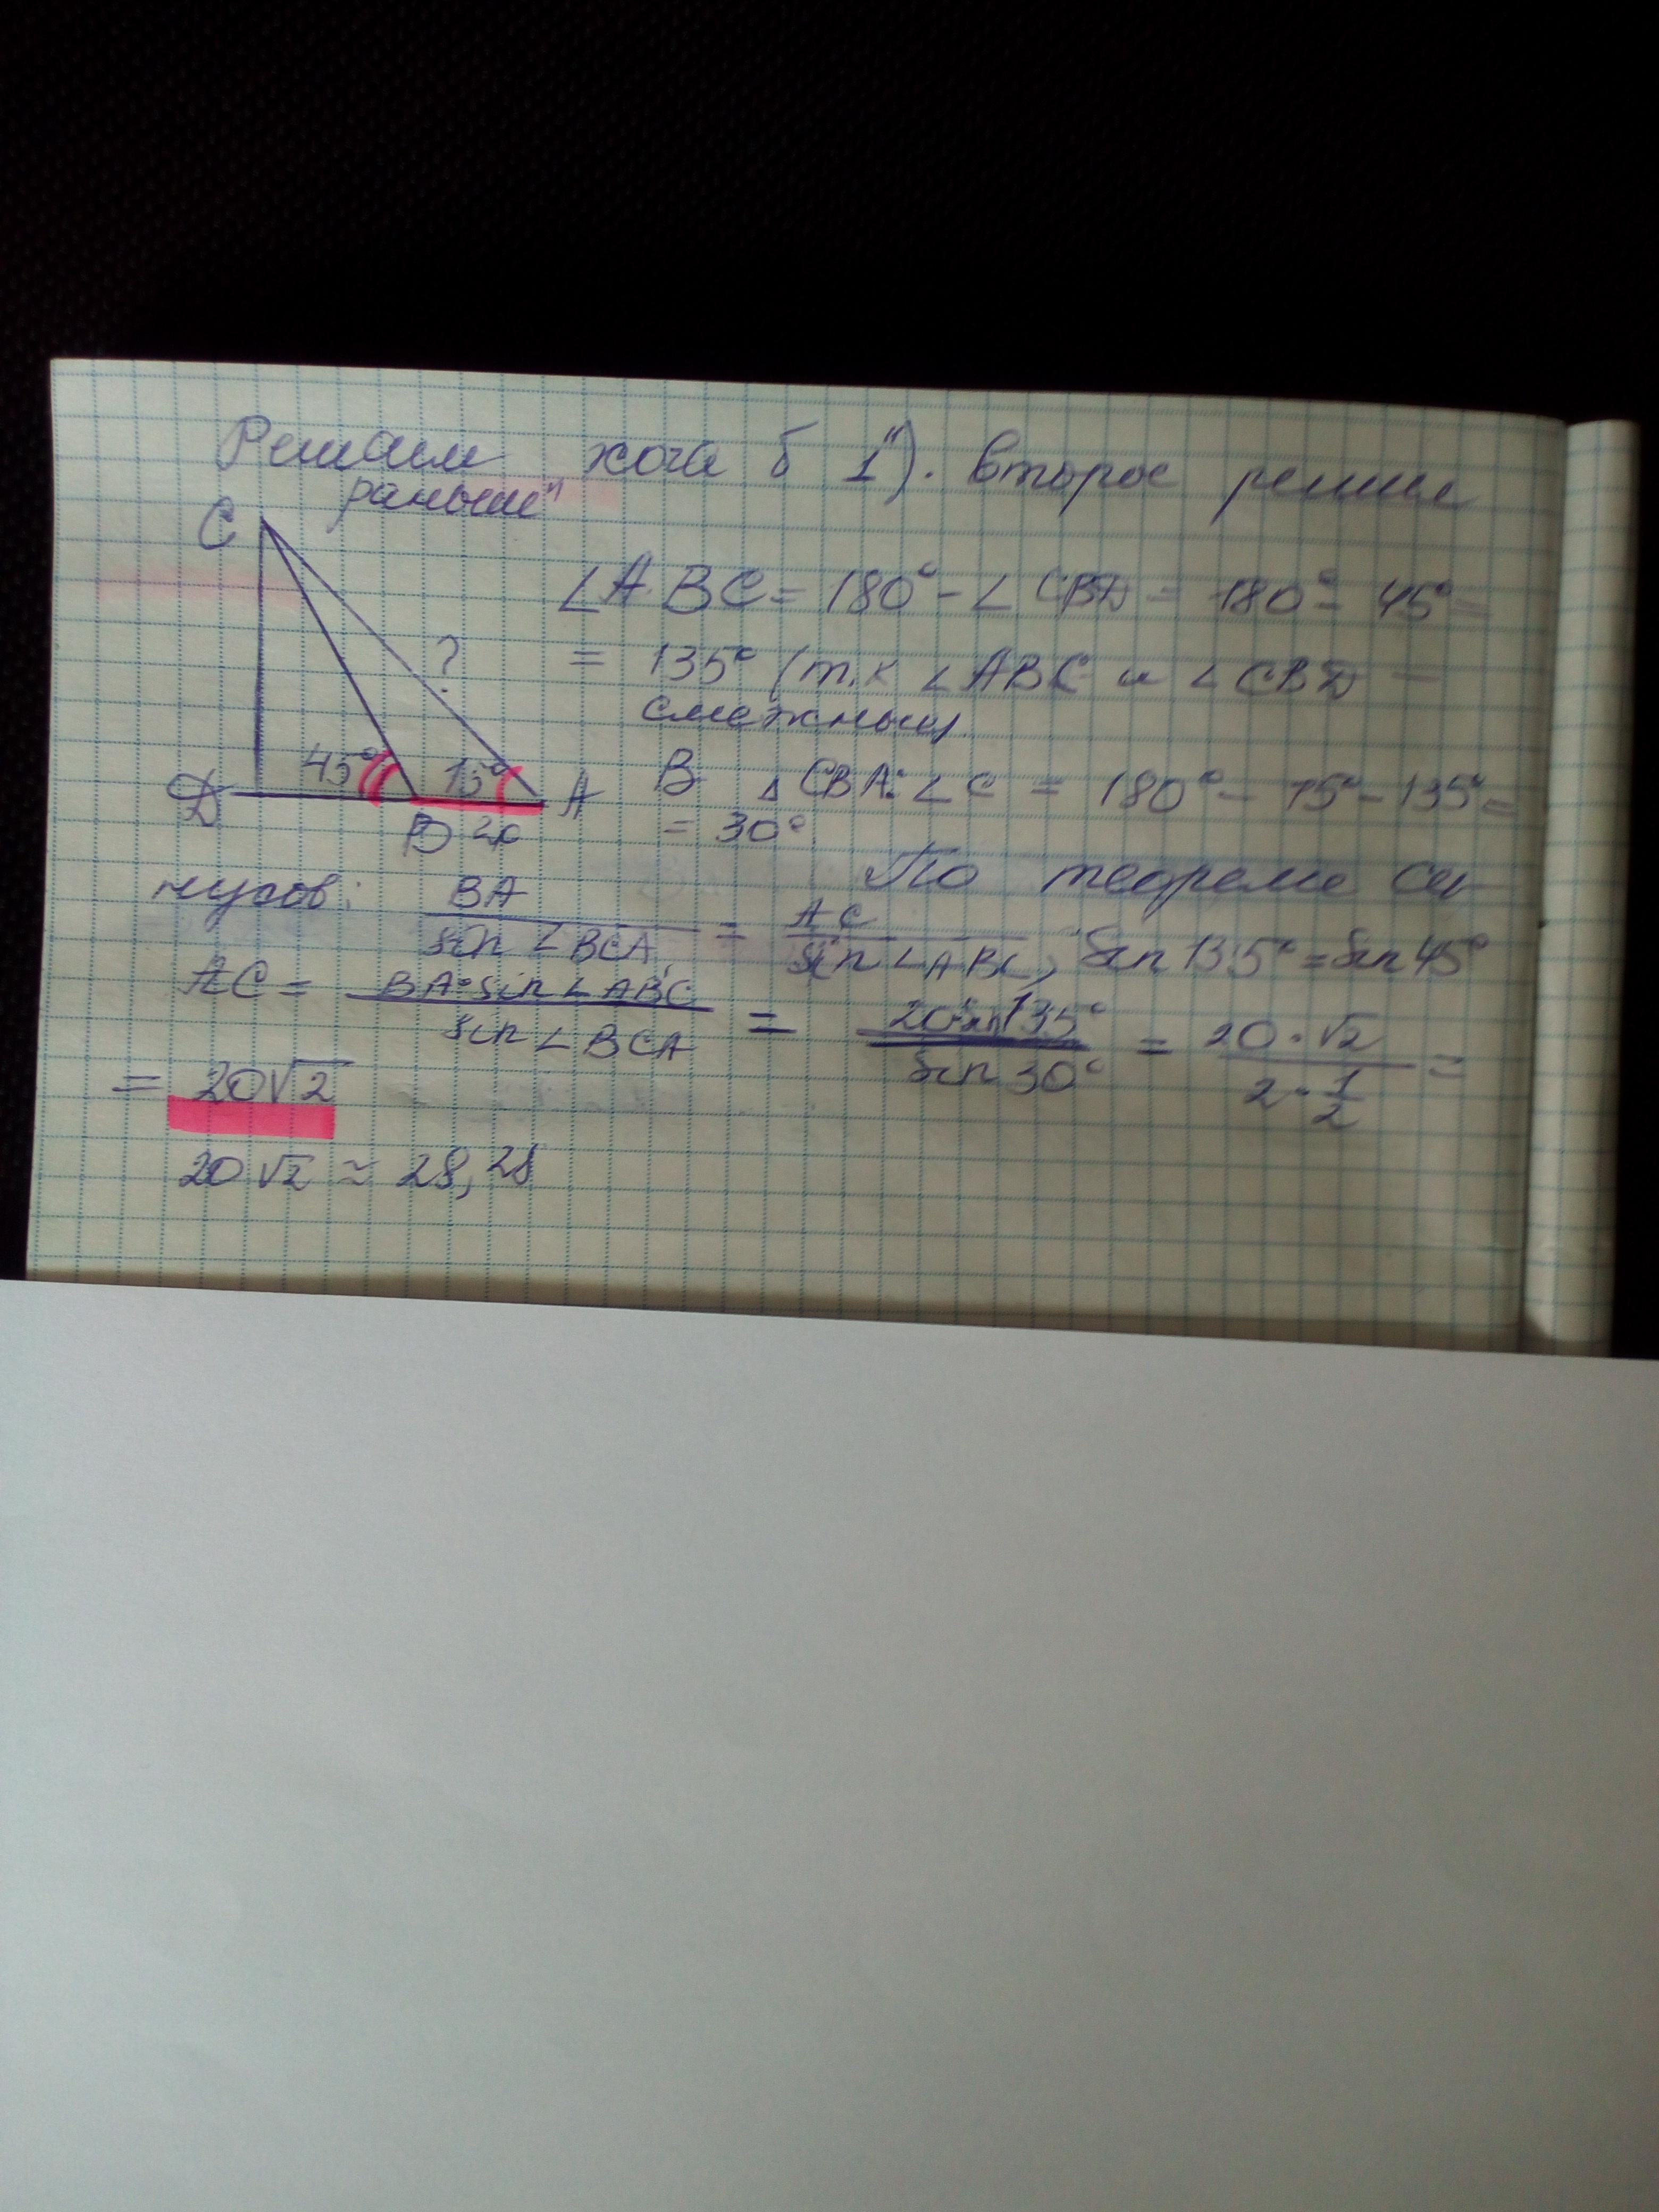 Решаем хотя б 1"). второе решим
раньше"
C
∠ABC = 180° - ∠CBD = 180° - 45° =
?
= 135° (т.к ∠ABC и ∠CBD -
смежные).
45° 15°
D B 20 A
В △CBA: ∠C = 180° - 15° - 135° =
= 30°
По теореме си-
нусов: BA / sin ∠BCA = AC / sin ∠ABC, sin 135° = sin 45°
AC = BA · sin ∠ABC / sin ∠BCA = 20 sin 135° / sin 30° = 20 · √2 / 2 · 1/2 =
= 20√2
20√2 ≈ 28,28